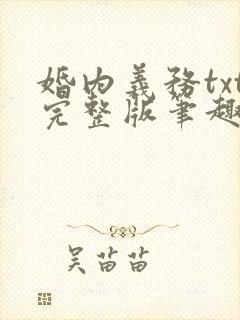 婚内義務txt
完整版筆趣
吴苗苗